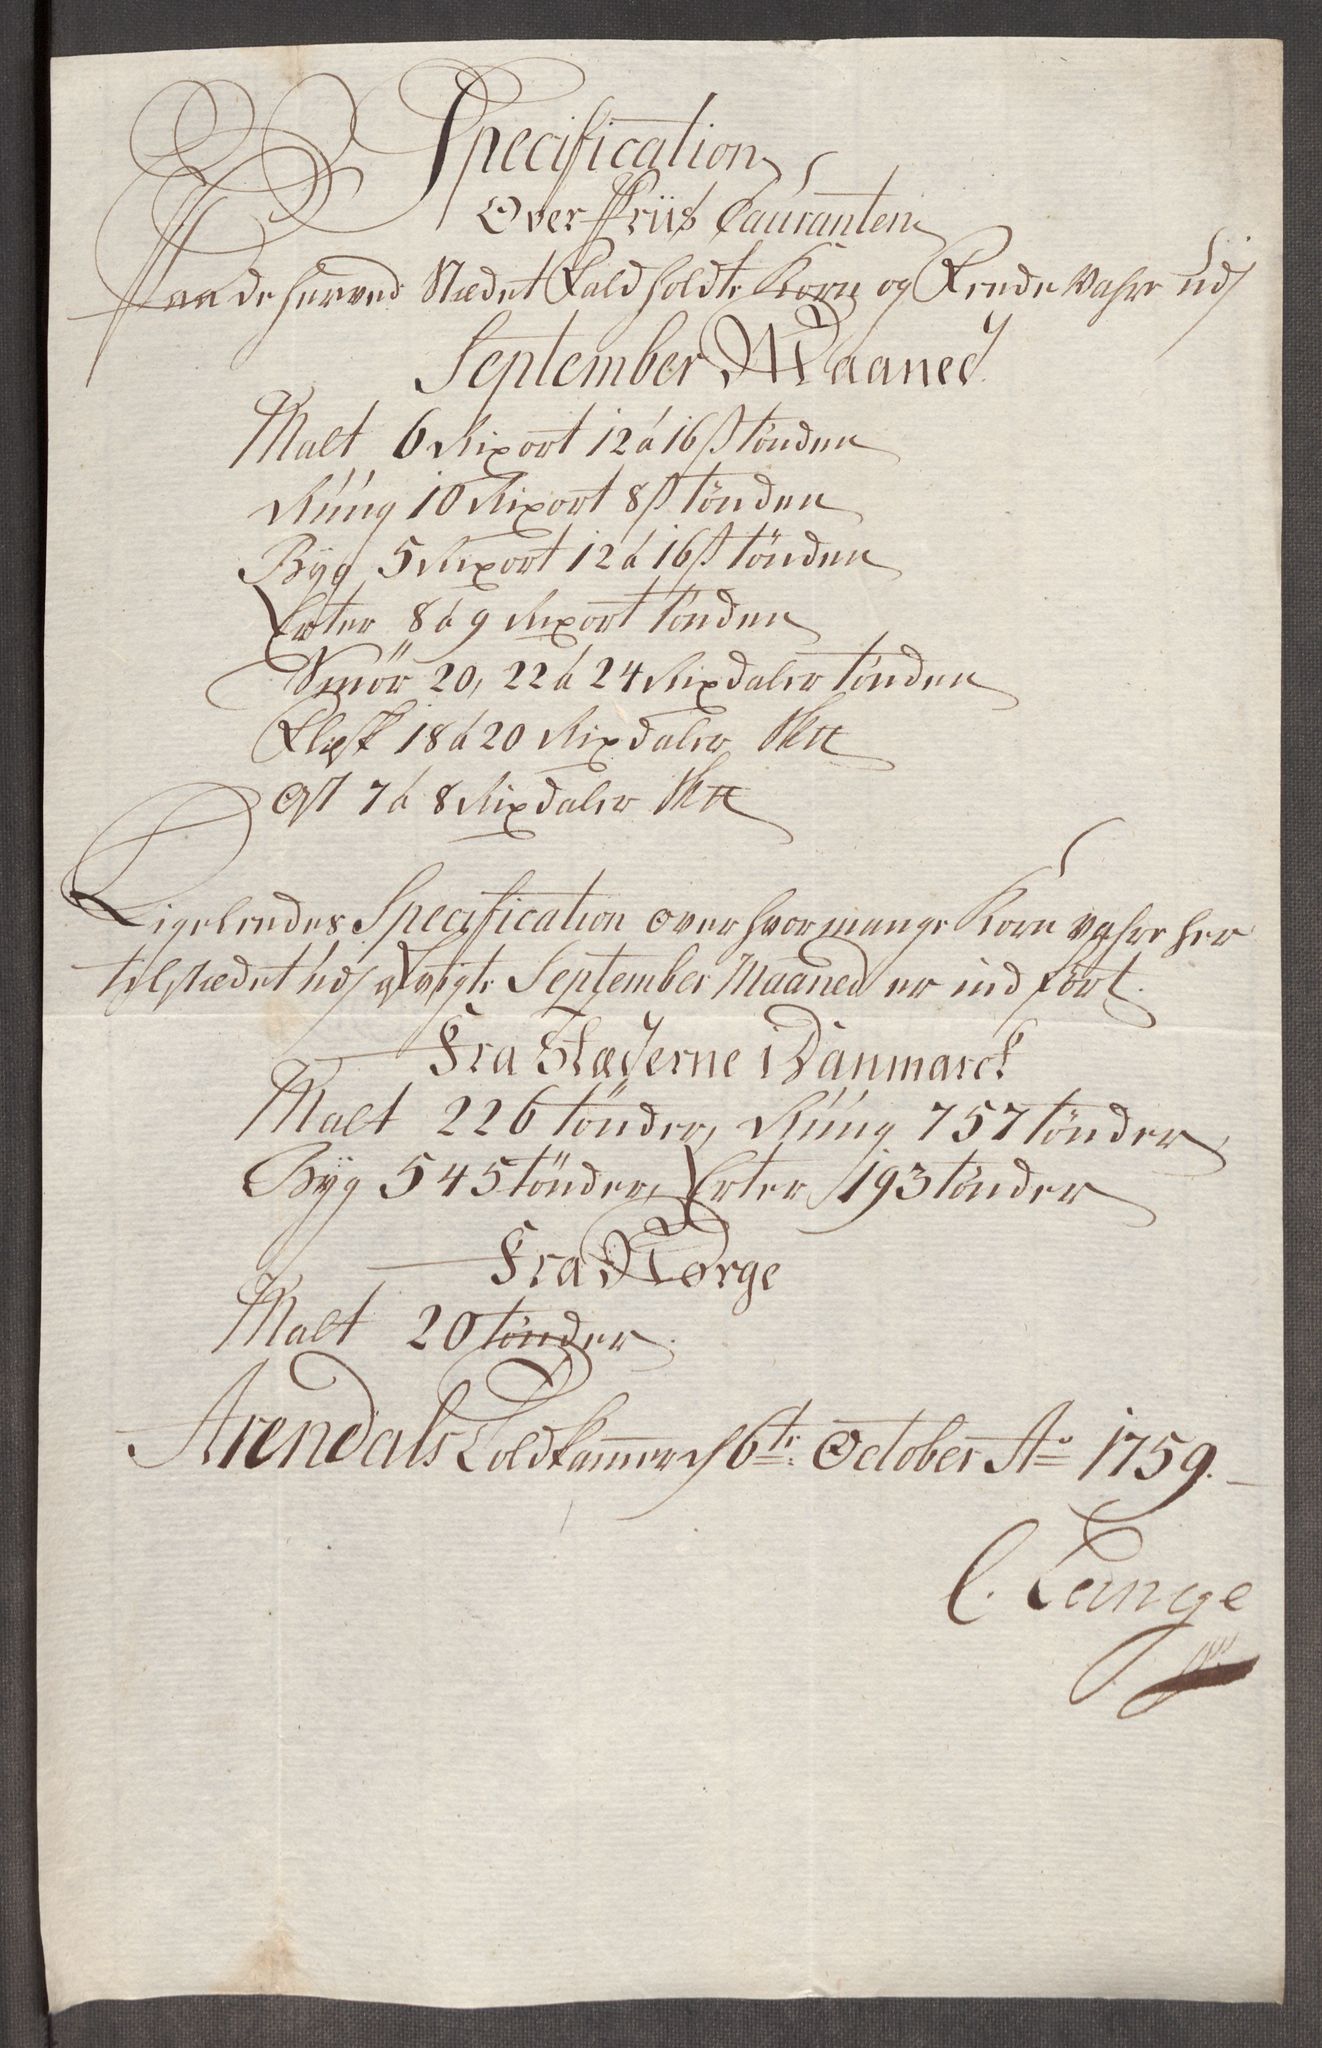 Specification
Over Priis Couranten
Paa de herved Stædet Fald holdte Korn og Fende Vahre udj
September Maaned
Malt 6 Rixort 12 à 16 s tönden
Rúúg 10 Rixort 8 s tönden
Byg 5 Rixort 12 à 16 s tönden
Erter 8 à 9 Rixort tönden
Smör 20, 22 à 24 Rixdaler tönden
Flæsk 18 à 20 Rixdaler
Ost 7 à 8 Rixdaler
Ligeleedes Specification over hvor mange Korn vahre her
til stædet udj September Maaned er ind fört.
Fra Stæderne i Danmarck
Malt 226 tönder, Rúúg 757 tönder
Byg 545 tönder, Erter 193 tönder
Fra Norge
Malt 20 tönder.
Arendals Toldkammer d 6te October Ao 1759.
C. Lunge